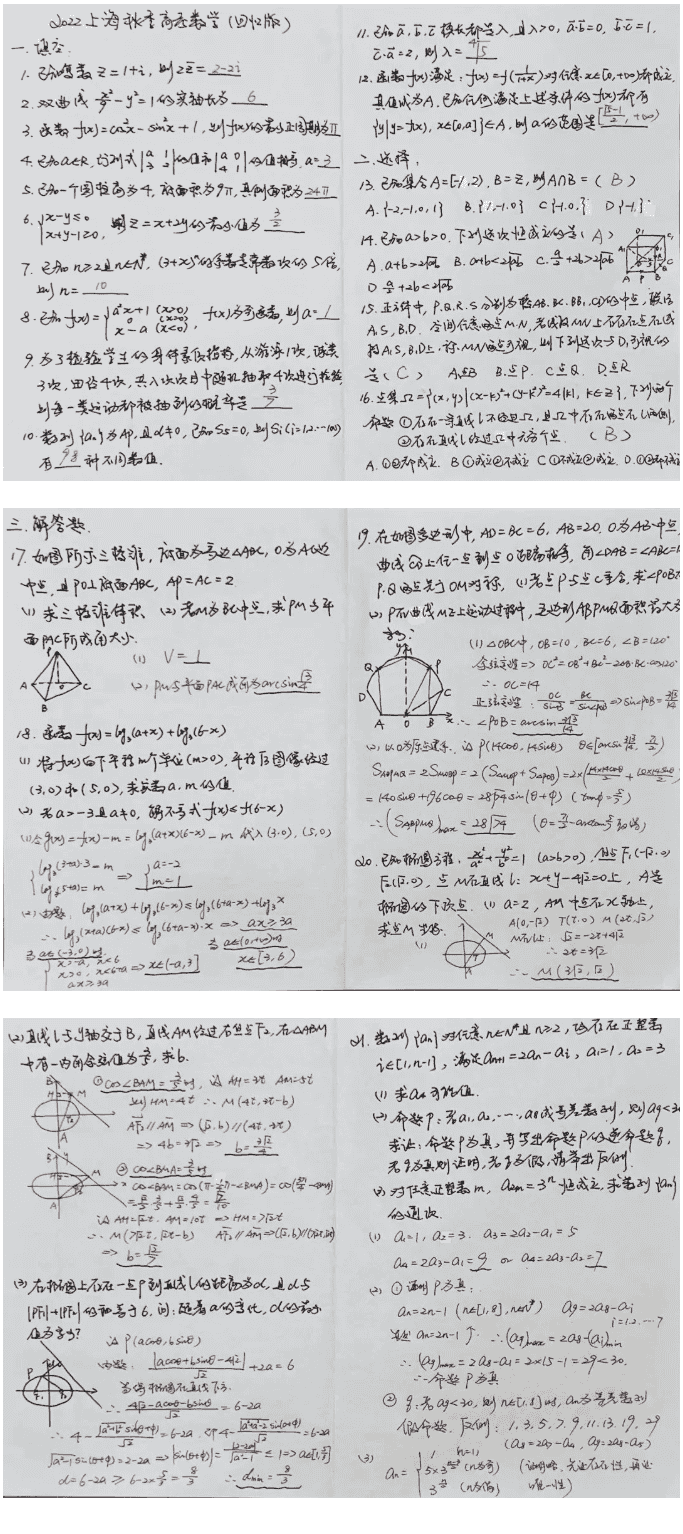 2022上海秋季高考数学(回忆版)
一.填空.
1. 已知复数 z=1+i, 则2z̄=2-2i
2. 双曲线 x²/9-y²=1的实轴长为 6
3. 函数 f(x)=cos²x-sin²x+1, 则f(x)的最小正周期为π
4. 已知a∈R, 行列式|a 1; 3 2|的值和|a 0; 4 1|的值相等, a=3
5. 已知一个圆柱高为4, 底面积为9π, 其侧面积为24π
6. {x-y≤0 x+y-1≥0, 则z=x+2y的最小值为 3/2
7. 已知n≥2且n∈N*, (3+x)ⁿ的系数是常数次的5倍,
则n= 10
8. 已知f(x)={a²x+1 (x>0) 0 (x=0) x-a (x<0), f(x)为奇函数, 则a=1
9. 为了检验学生的身体素质指标, 从游泳1次, 球类
3次, 田径4次, 共八次项目中随机抽取4次进行检验
则每一类运动都被抽到的概率是 3/7
10. 数列{an}为AP, 且d≠0, 已知S5=0, 则Si(i=1,2,…100)
有 98 种不同数值.
11. 已知a,b,c模长都等入, 且λ>0, a·b=0, b·c=1,
c·a=2, 则λ=⁴√5
12. 函数f(x)满足: f(x)=f(1/(1+x))对任意x∈[0,+∞)都成立,
其值域为A, 已知任何满足上述条件的f(x)都有
{y|y=f(x), x∈[0,a]}∈A, 则a的范围是[(√5-1)/2,+∞)
二. 选择.
13. 已知集合A=[-1,2), B=Z, 则A∩B=(B)
A.{-2,-1,0,1} B.{-1,0} C{-1,0,} D{-1,}
14. 已知a>b>0. 下列选项恒成立的是(A)
A. a+b>2√ab B. a+b<2√ab C. a/2+2b>2√ab
D a/2+2b<2√ab
15. 正方体中, P.Q.R.S分别为棱AB.BC.BB1.CD的中点, 联结
A1S, B1D. 空间任意两点M.N, 若线段MN上不存在点在线
段A1S, B1D上, 称MN两点可视, 则下列选项与D1可视的
是(C) A.点B B.点P. C点Q. D点R
16. 点集Ω={(x,y)|(x-k)²+(y-k²)²=4|k|, k∈Z}, 下列两个
命题①存在一直线l不过Ω, 且Ω中存在两点在l两侧,
②存在直线l经过Ω中无穷个点. (B)
A. ①②都成立. B①成立②不成立 C①不成立②成立. D.①②都不成立
三. 解答题.
17. 如图所示三棱锥, 底面为等边△ABC, O为AC边
中点, 且PO⊥底面ABC, AP=AC=2
(1) 求三棱锥体积 (2) 若M为BC中点, 求PM与平
面PAC所成角大小.
(1) V=1
(2) PM与平面PAC成角为arcsin√3/4
18. 函数f(x)=log₃(a+x)+log₃(6-x)
(1) 将f(x)向下平移m个单位(m>0), 平移后图像经过
(3,0)和(5,0), 求实数a,m的值.
(2) 若a>-3且a≠0, 解不等式f(x)≤f(6-x)
(1)令g(x)=f(x)-m=log₃(a+x)(6-x)-m 代入(3,0), (5,0)
{log₃(3+a)·3=m log₃(5+a)=m ⇒ {a=-2 m=1
(2)由题: log₃(a+x)+log₃(6-x)≤log₃(6+a-x)+log₃x
∴ log₃(x+a)(6-x)≤log₃(6+a-x)·x ⇒ ax≥3a
当a∈(-3,0)时
{x>-a, x<6 x>0, x<6+a ax≥3a ⇒ x∈(-a,3]
当a∈(0,+∞)时
x∈[3,6)
19. 在如图多边形中, AD=BC=6, AB=20. O为AB中点,
曲线CD上任一点到点O距离相等, 角∠DAB=∠ABC=
P.Q两点关于OM对称, (1)若点P与点C重合, 求∠POB大
(2) P在曲线MC上运动过程中, 五边形ABPMQ面积最大为
多少?
(1) △OBC中, OB=10, BC=6, ∠B=120°
余弦定理⇒ OC²=OB²+BC²-2OB·BC·cos120°
∴ OC=14
正弦定理: OC/sinB=BC/sin∠POB ⇒sin∠POB=3√3/14
∴ ∠POB=arcsin 3√3/14
(2) 以O为原点建系, 设P(14cosθ,14sinθ) θ∈[arcsin3√3/14, π/2)
=140sinθ+196cosθ=28√74sin(θ+φ) (tanφ=7/5)
∴(SABPMQ)max=28√74 (θ=π/2-arctan7/5取等)
20. 已知椭圆方程: x²/a²+y²/b²=1 (a>b>0), 焦点F1(-√2,0)
F2(√2,0), 点M在直线l: x+y-4√2=0上, A是
椭圆的下顶点. (1) a=2, AM中点在x轴上,
求点M坐标.
(1)
A(0,-√2) T(t,0) M(2t,√2)
M在l上: √2=-2t+4√2
∴ 2t=3√2
∴ M(3√2,√2)
(2)直线l与y轴交于B, 直线AM经过右焦点F2, 在△ABM
中有一内角余弦值为3/5, 求b.
①cos∠BAM=3/5时, 设AH=3t AM=5t
则HM=4t ∴M(4t,3t-b)
AF2∥AM ⇒ (√2,b)∥(4t,3t)
⇒ 4b=3√2 ⇒ b=3√2/4
②cos∠BMA=3/5时
cos∠BAM=cos(π-π/4-∠BMA)=cos(3π/4-∠BMA)
设AH=√2t, AM=10t ⇒HM=7√2t
∴ M(7√2t,√2t-b) AF2∥AM⇒(√2,b)∥(7√2t,√2t)
⇒ b=√2/7
(3)在椭圆上存在一点P到直线l的距离为d, 且d与
|PF1|+|PF2|的和等于6, 问: 随着a的变化, d的最小
值为多少?
设P(acosθ,bsinθ)
由题: |acosθ+bsinθ-4√2|/√2+2a=6
当仅椭圆在直线下方.
(4√2-acosθ-bsinθ)/√2=6-2a
∴ 4-√(a²+b²)sin(θ+φ)/√2=6-2a, 即4-√(2a²-2)sin(θ+φ)/√2=6-2a
√(a²-1)sin(θ+φ)=2a-2 ⇒|sin(θ+φ)|=|2-2a|/√(a²-1)≤1⇒a∈(1,5/3]
d=6-2a≥6-2×5/3=8/3 ∴dmin=8/3
21. 数列{an}对任意n∈N*且n≥2, 均存在正整数
i∈[1,n-1], 满足an+1=2an-ai, a1=1, a2=3
(1) 求a4可能值.
(2) 命题P: 若a1,a2,…,a8成等差数列, 则a9<30
求证: 命题P为真, 并写出命题P的逆命题q,
若q为真则证明, 若q为假, 请举出反例.
(3) 对任意正整数m, a2m=3ᵐ恒成立, 求数列{an}
的通项.
(1) a1=1, a2=3. a3=2a2-a1=5
a4=2a3-a1=9 or a4=2a3-a2=7
(2) ①证明P为真:
an=2n-1 (n∈[1,8],n∈N*) a9=2a8-ai
i=1,2…7
∴(a9)max=2a8-(ai)min
∴(a9)max=2a8-a1=2×15-1=29<30.
∴命题P为真
②q: 若a9<30, 则n∈[1,8]时, an为等差数列
假命题. 反例: 1,3,5,7,9,11,13,19,29
(3)